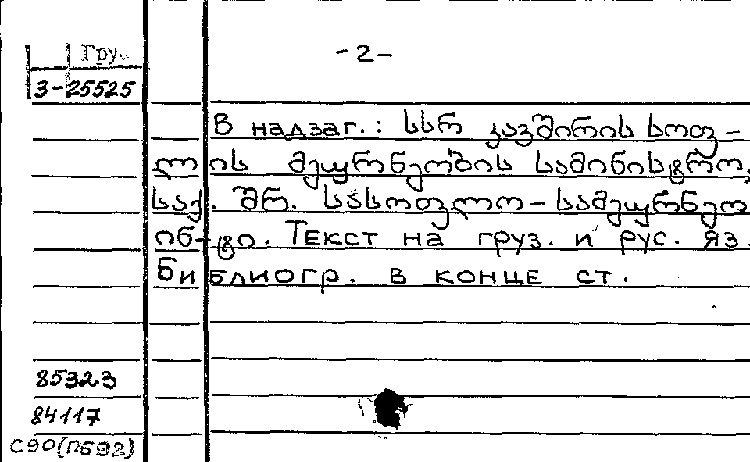 Гру.
-2-
3-25525
В надзаг.: სსრ კავშირის სოფ-
ლის მეურნეობის სამინისტრო,
საქ. შრ. სასოფლო-სამეურნეო
ინ-ტი. Текст на груз. и рус. яз.
Библиогр. в конце ст.
85323
84117
С90(П692)